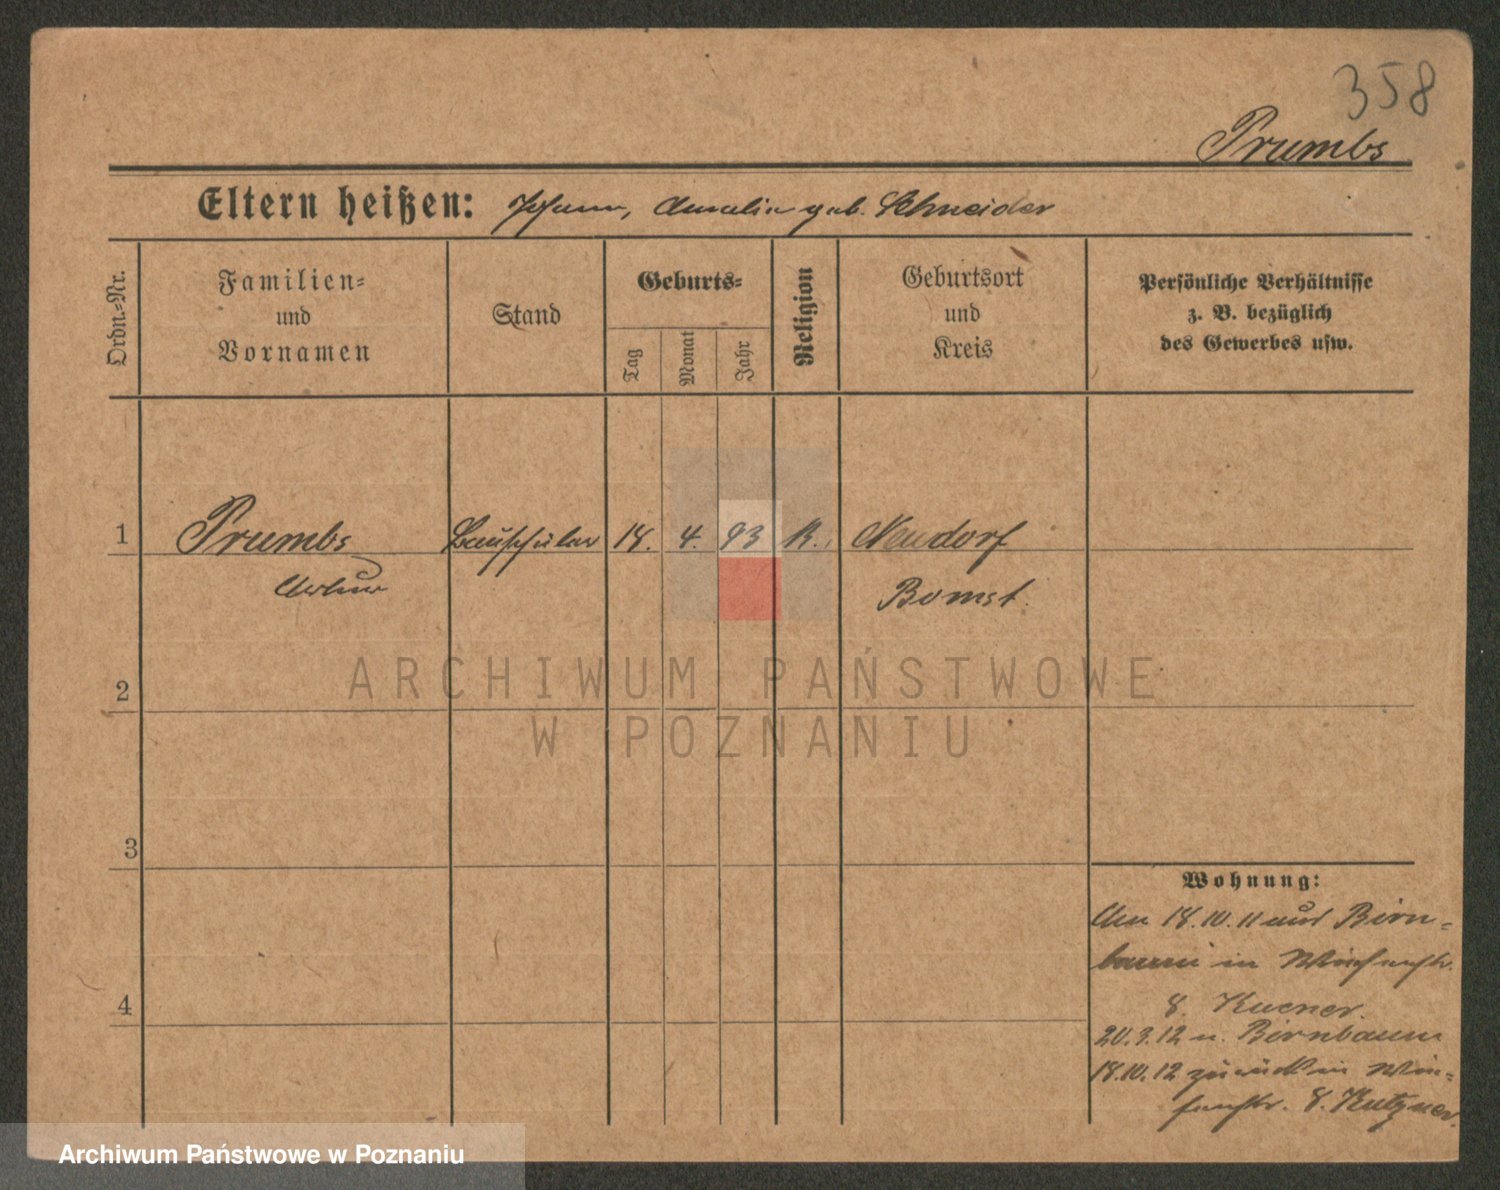 358
Prumbs
Eltern heißen: Johann, Amalie geb. Schneider
Ordn.=Nr.
Familien=
und
Vornamen
Stand
Geburts=
Tag
Monat
Jahr
Religion
Geburtsort
und
Kreis
Persönliche Verhältnisse
z. B. bezüglich
des Gewerbes usw.
1 Prumbs Bauschüler 18. 4. 93 K. Neudorf
Arthur Bomst.
2
ARCHIWUM PAŃSTWOWE
W POZNANIU
3
Wohnung:
18.10.11 aus Birn=
baum in
4
8. Kucner.
20.3.12 n. Birnbaum
18.10.12 zurück in Win=
8. Kutzner.
Archiwum Państwowe w Poznaniu